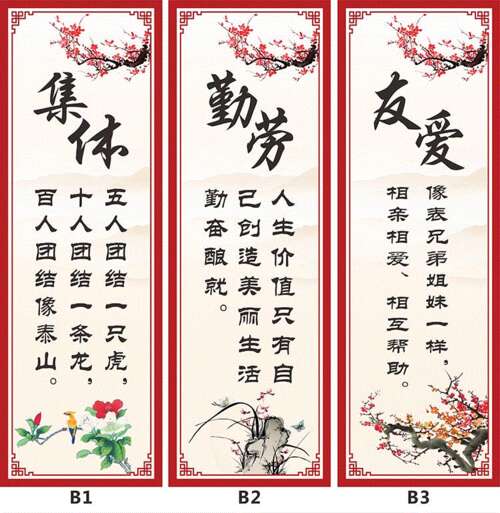 集体
五人团结一只虎，
十人团结一条龙，
百人团结像泰山。
B1
勤劳
人生价值只有自
己创造美丽生活
勤奋酿就。
B2
友爱
像表兄弟姐妹一样，
相亲相爱、相互帮助。
B3